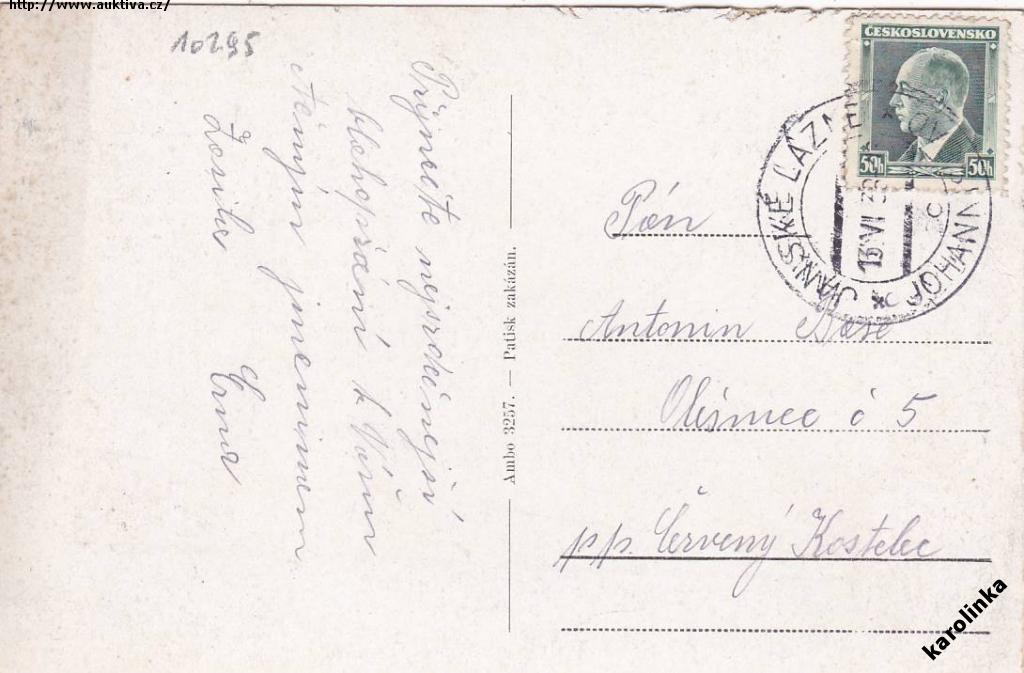 http://www.auktiva.cz/
10295
Přijměte nejsrdečnější
blahopřání k Vašim
jmeninem
Ambo 3257. — Patisk zakázán.
ČESKOSLOVENSKO
50h 50h
JANSKÉ LÁZNĚ
JOHANN
13 VII 38
Pán
Antonin
Olešnice č 5
pp. Červený Kostelec
karolinka